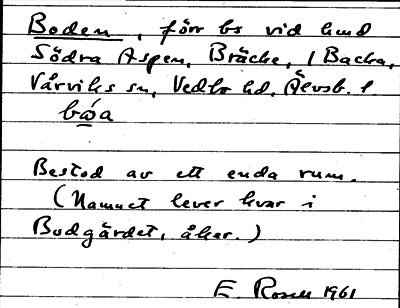 Boden, förr bs vid hmd
Södra Aspen, Bräcke, l Backa,
Vårviks sn, Vedbo hd, Älvsb. l
båa
Bestod av ett enda rum.
(Namnet lever kvar i
Budgärdet, åker.)
E. Rosell 1961